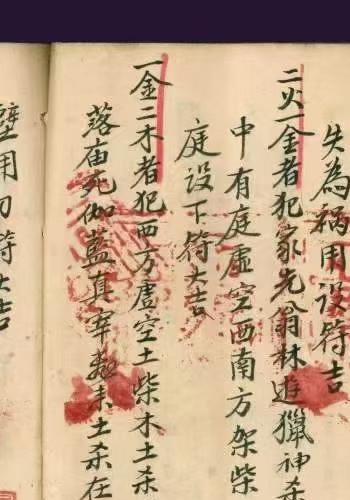 失為禍用設符吉
二火一金者犯家先翁林遊獵神杀
中有庭虛空西南方架柴
庭設下符大吉
一金二木者犯西方虛空土柴木土杀
落庙死伽藍真宰土杀在
壁用切符大吉